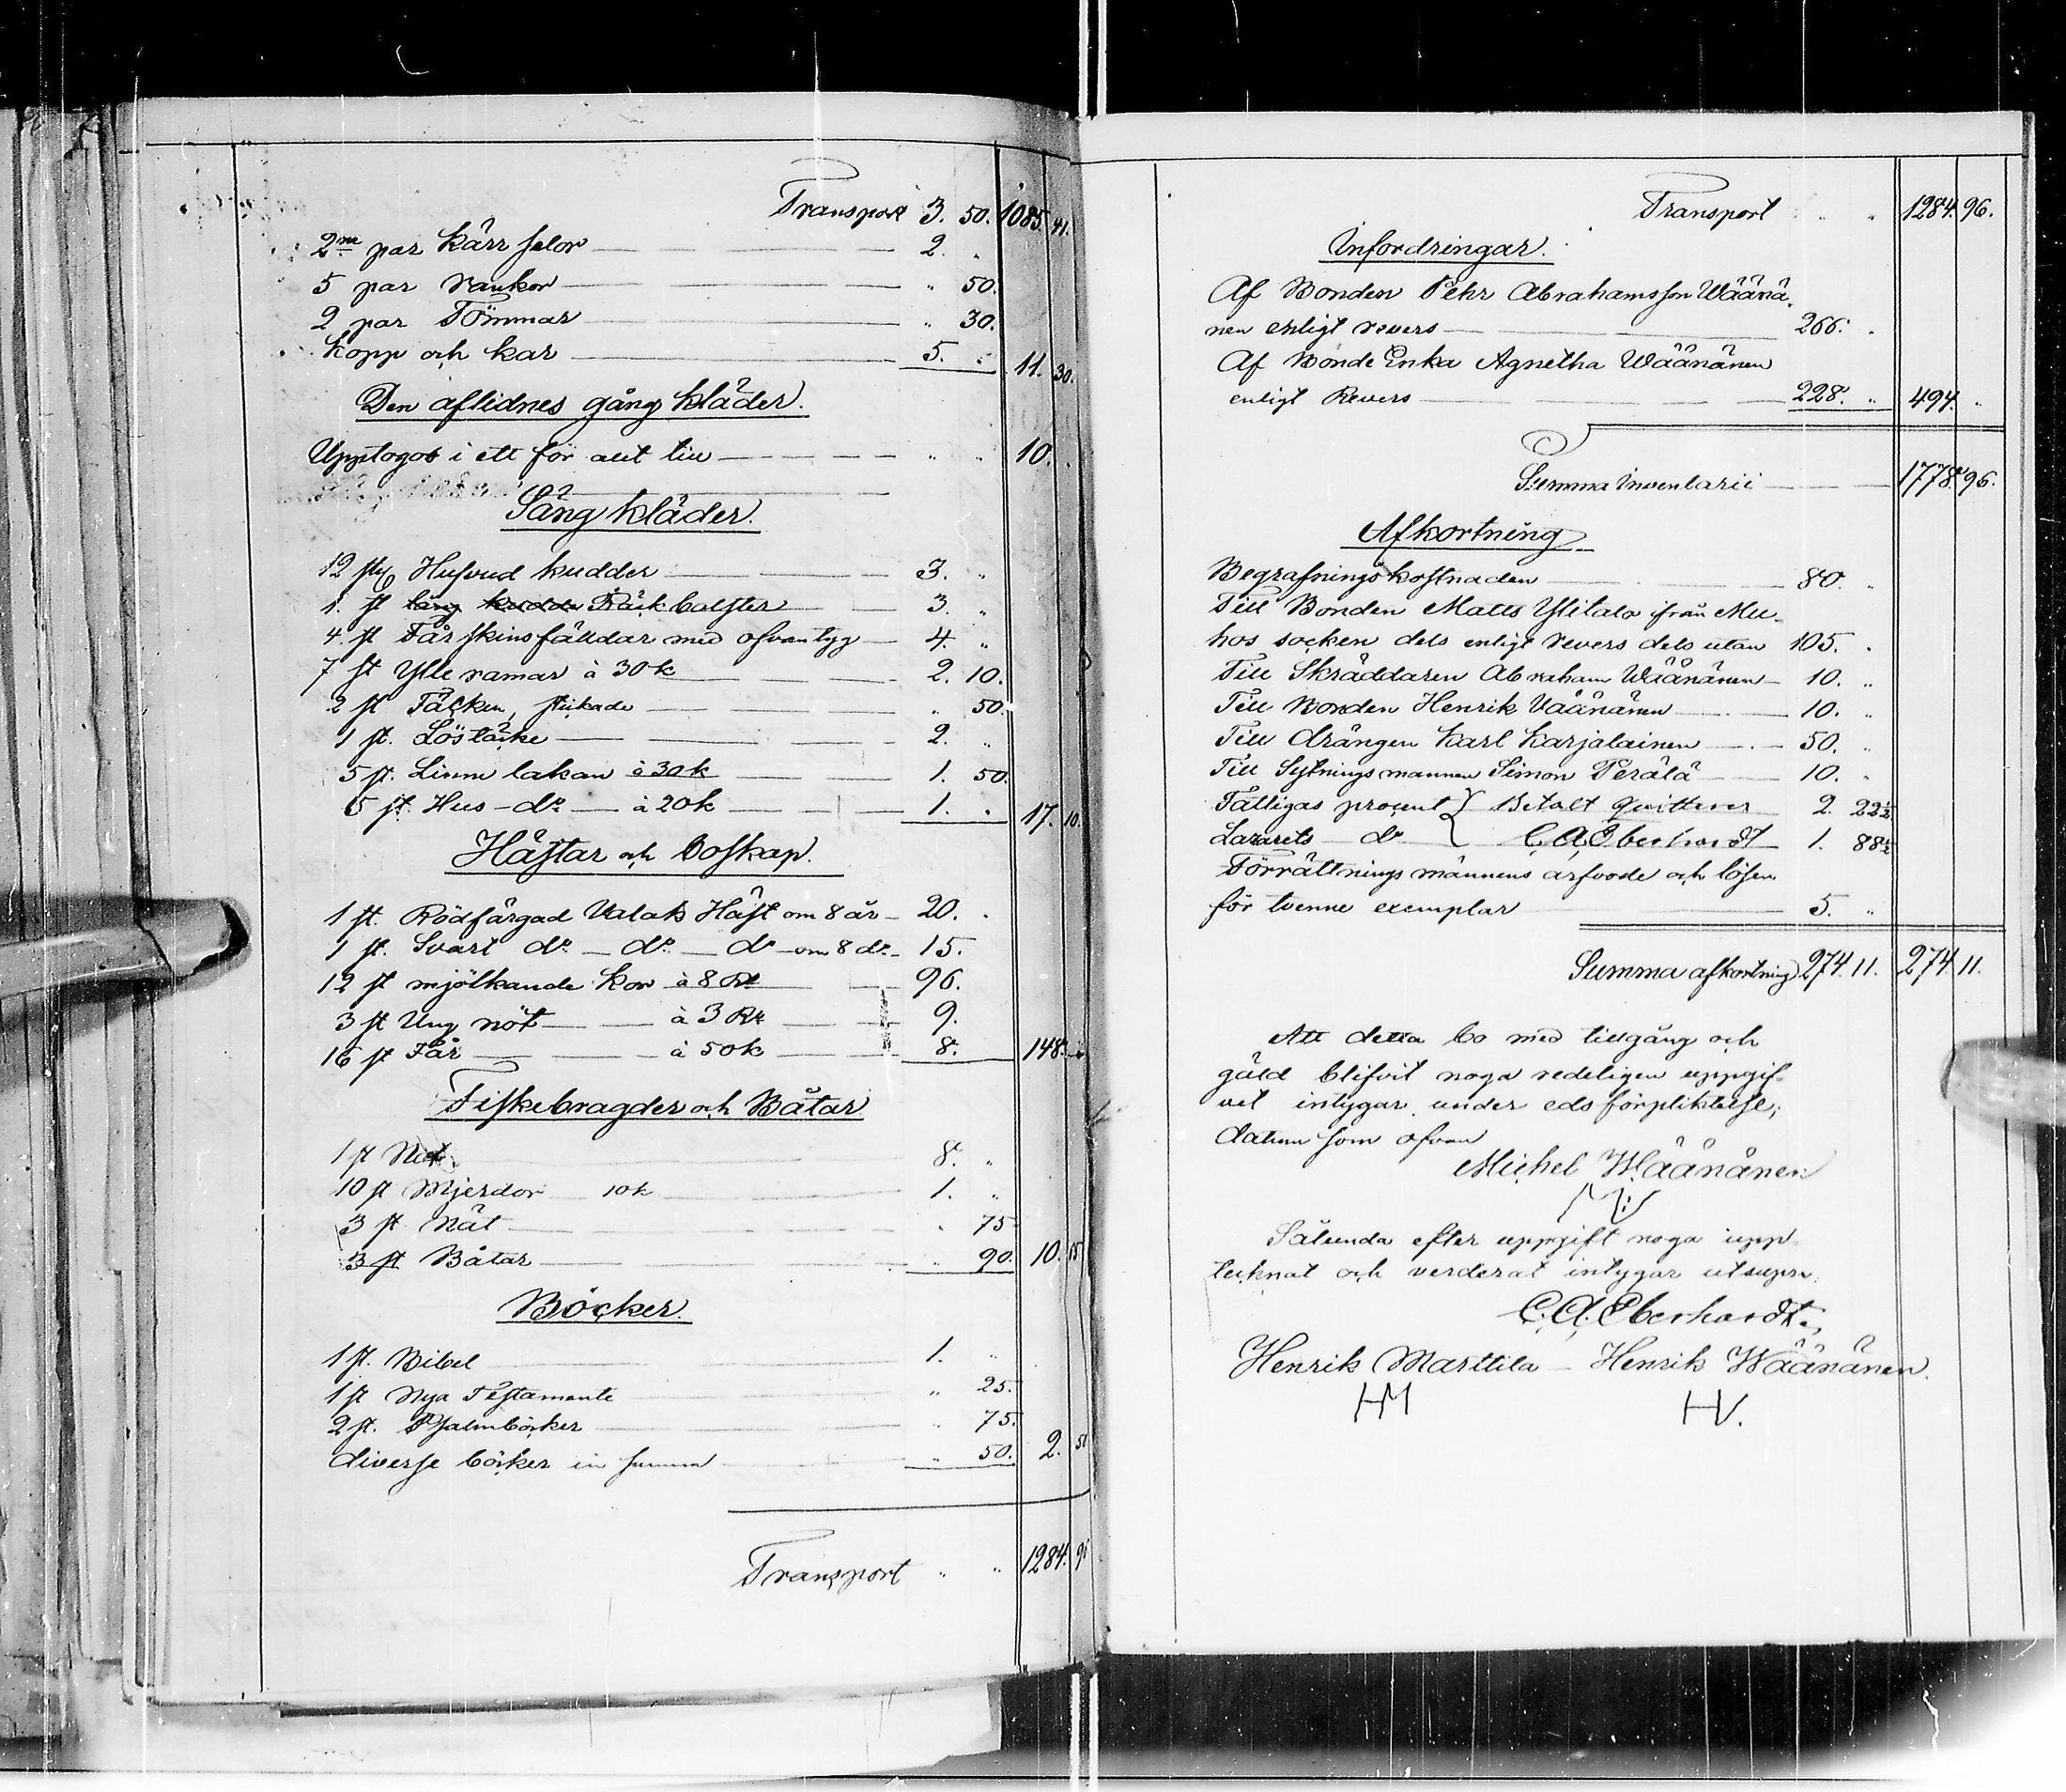 Transport 3. 50. 1085. 41.
2ne par kärr selor 2. "
5 par rankor " 50.
2 par Tömmar " 30.
Kopp och kar 5. " 11. 30.
Den aflidnes gång kläder.
Upptogos i ett för allt till " " 10. "
Säng kläder.
12 st Hufvud kudder 3. "
1. st lång kudde Räckbolster 3. "
4. st Får skins fälldar med ofvantyg 4. "
7 st Ylle ramar à 30 k 2. 10.
2 st Täcken, stickade " 50.
1 st. Löstäcke 2. "
5 st. Linne lakan à 30 k 1. 50.
5 st. Hus - do à 20 k 1. " 17. 10.
Hästar och boskap.
1 st. Rödfärgad Valaks Häst om 8 år 20. "
1 st. Svart do do do om 8 do 15.
12 st mjölkande Kor à 8 Rl 96.
3 st Ung nöt à 3 Rl 9.
16 st Får à 50 k 8. 148. "
Fiskebragder och Båtar
1 st Not 8. "
10 st Mjerdor 10 k 1. "
3 st Nät " 75
3 st Båtar " 90. 10. 15
Böcker.
1 st. Bibel 1. "
1 st Nya Testamente " 25.
2 st. Psalmböcker " 75.
diverse böcker in summa " 50. 2. 50
Transport " " 1284. 96
Transport " " 1284. 96.
Infordringar.
Af Bonden Pehr Abrahamsson Wäänä-
nen enligt revers 266. "
Af Bonde Enka Agnetha Wäänänen
enligt Revers 228. " 494. "
Summa Inventarii 1778. 96.
Afkortning
Begrafningskostnaden 80. "
Till Bonden Matts Ylitalo ifrån Mu-
hos socken dels enligt revers dels utan 105. "
Till Skräddaren Abraham Wäänänen 10. "
Till Bonden Henrik Väänänen 10. "
Till drängen Karl Karjalainen 50. "
Till Sytnings mannen Simon Perälä 10. "
Fattigas procent } Betalt quitterer 2. 22½
Lazarets do { C. A. Eberhardt 1. 88½
Förrättnings männens arfvode och lösen
för tvenne exemplar 5. "
Summa afkortning 274. 11. 274. 11.
Att detta bo med tillgång och
gäld blifvit noga redeligen uppgif-
vet intygar under eds förpliktelse;
datum som ofvan
Michel Wäänänen
Sålunda efter uppgift noga upp
tecknat och verderat intygar utsupra
C. A. Eberhardt.
Henrik Marttila - Henrik Wäänänen.
HM HV.